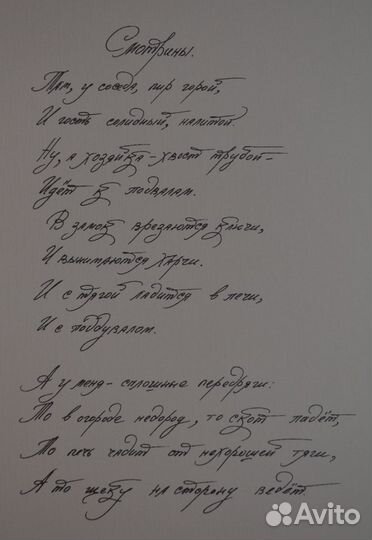 Смотрины.
Там, у соседа, пир горой,
И гость солидный, налитой.
Ну, а хозяйка - хвост трубой -
Идёт к подвалам.
В замок врезаются ключи,
И вынимаются харчи.
И с тягой ладится в печи,
И с поддувалом.
А у меня - сплошные передряги:
То в огороде недород, то скот падёт,
То печь чадит от нехорошей тяги,
А то щеку на сторону ведёт.
Avito